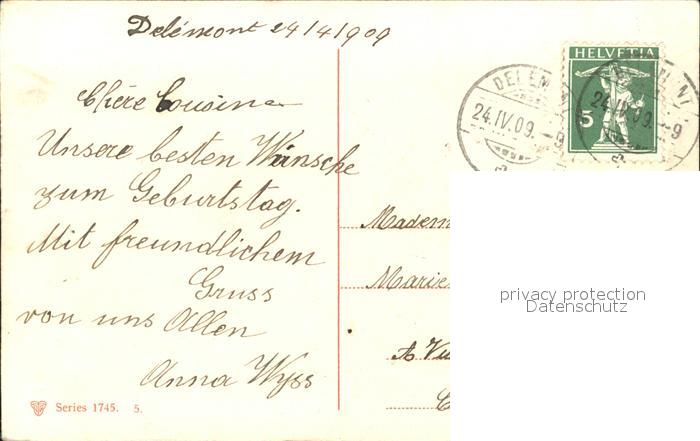 Delémont 24/4/909
Chère Cousine
Unsere besten Wünsche
zum Geburtstag.
Mit freundlichem
Gruss
von uns Allen
Anna Wyss
Series 1745. 5.
HELVETIA
5
DELÉM
24.IV.09. - 9
24.IV.09. - 9
Madem
Marie
A Vu
privacy protection
Datenschutz